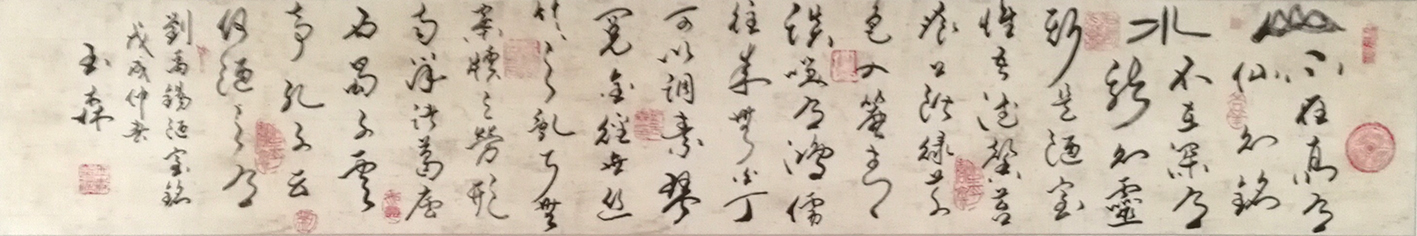 山不在高有
仙則銘
水不在深有
龍則靈
斯是陋室
惟吾德馨苔
痕上階綠草
色入簾青
談笑有鴻儒
往來無白丁
可以調素琴
閱金經無絲
竹之亂耳無
案牘之勞形
南洋諸葛廬
西蜀子雲
亭孔子云
何陋之有
劉禹錫陋室銘
戊戌仲春
玉森